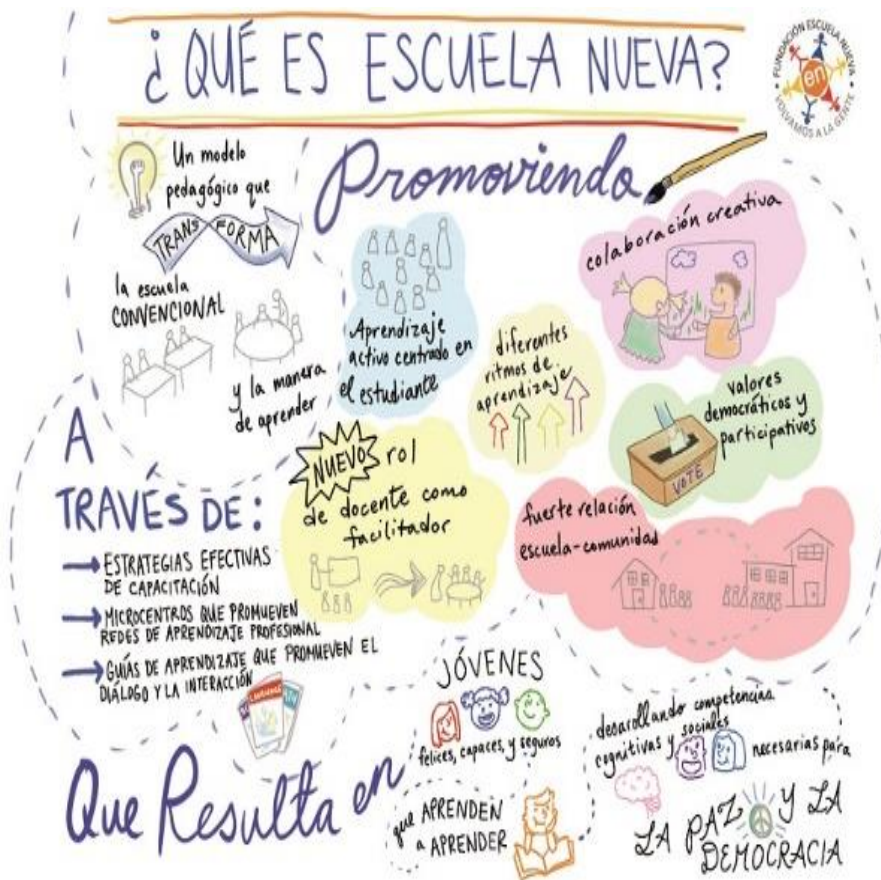 ¿QUÉ ES ESCUELA NUEVA?
FUNDACIÓN ESCUELA NUEVA
en
VOLVAMOS A LA GENTE
Un modelo
pedagógico que
TRANSFORMA
la escuela
CONVENCIONAL
y la manera
de aprender
Promoviendo
Aprendizaje
activo centrado en
el estudiante
diferentes
ritmos de
aprendizaje
colaboración creativa
valores
democráticos y
participativos
VOTE
NUEVO rol
de docente como
facilitador
fuerte relación
escuela-comunidad
A
TRAVÉS DE:
ESTRATEGIAS EFECTIVAS
DE CAPACITACIÓN
MICROCENTROS QUE PROMUEVEN
REDES DE APRENDIZAJE PROFESIONAL
GUÍAS DE APRENDIZAJE QUE PROMUEVEN EL
DIÁLOGO Y LA INTERACCIÓN
Que Resulta en
JÓVENES
felices, capaces, y seguros
que APRENDEN
a APRENDER
desarollando competencias
cognitivas y sociales
necesarias para
LA PAZ Y LA
DEMOCRACIA